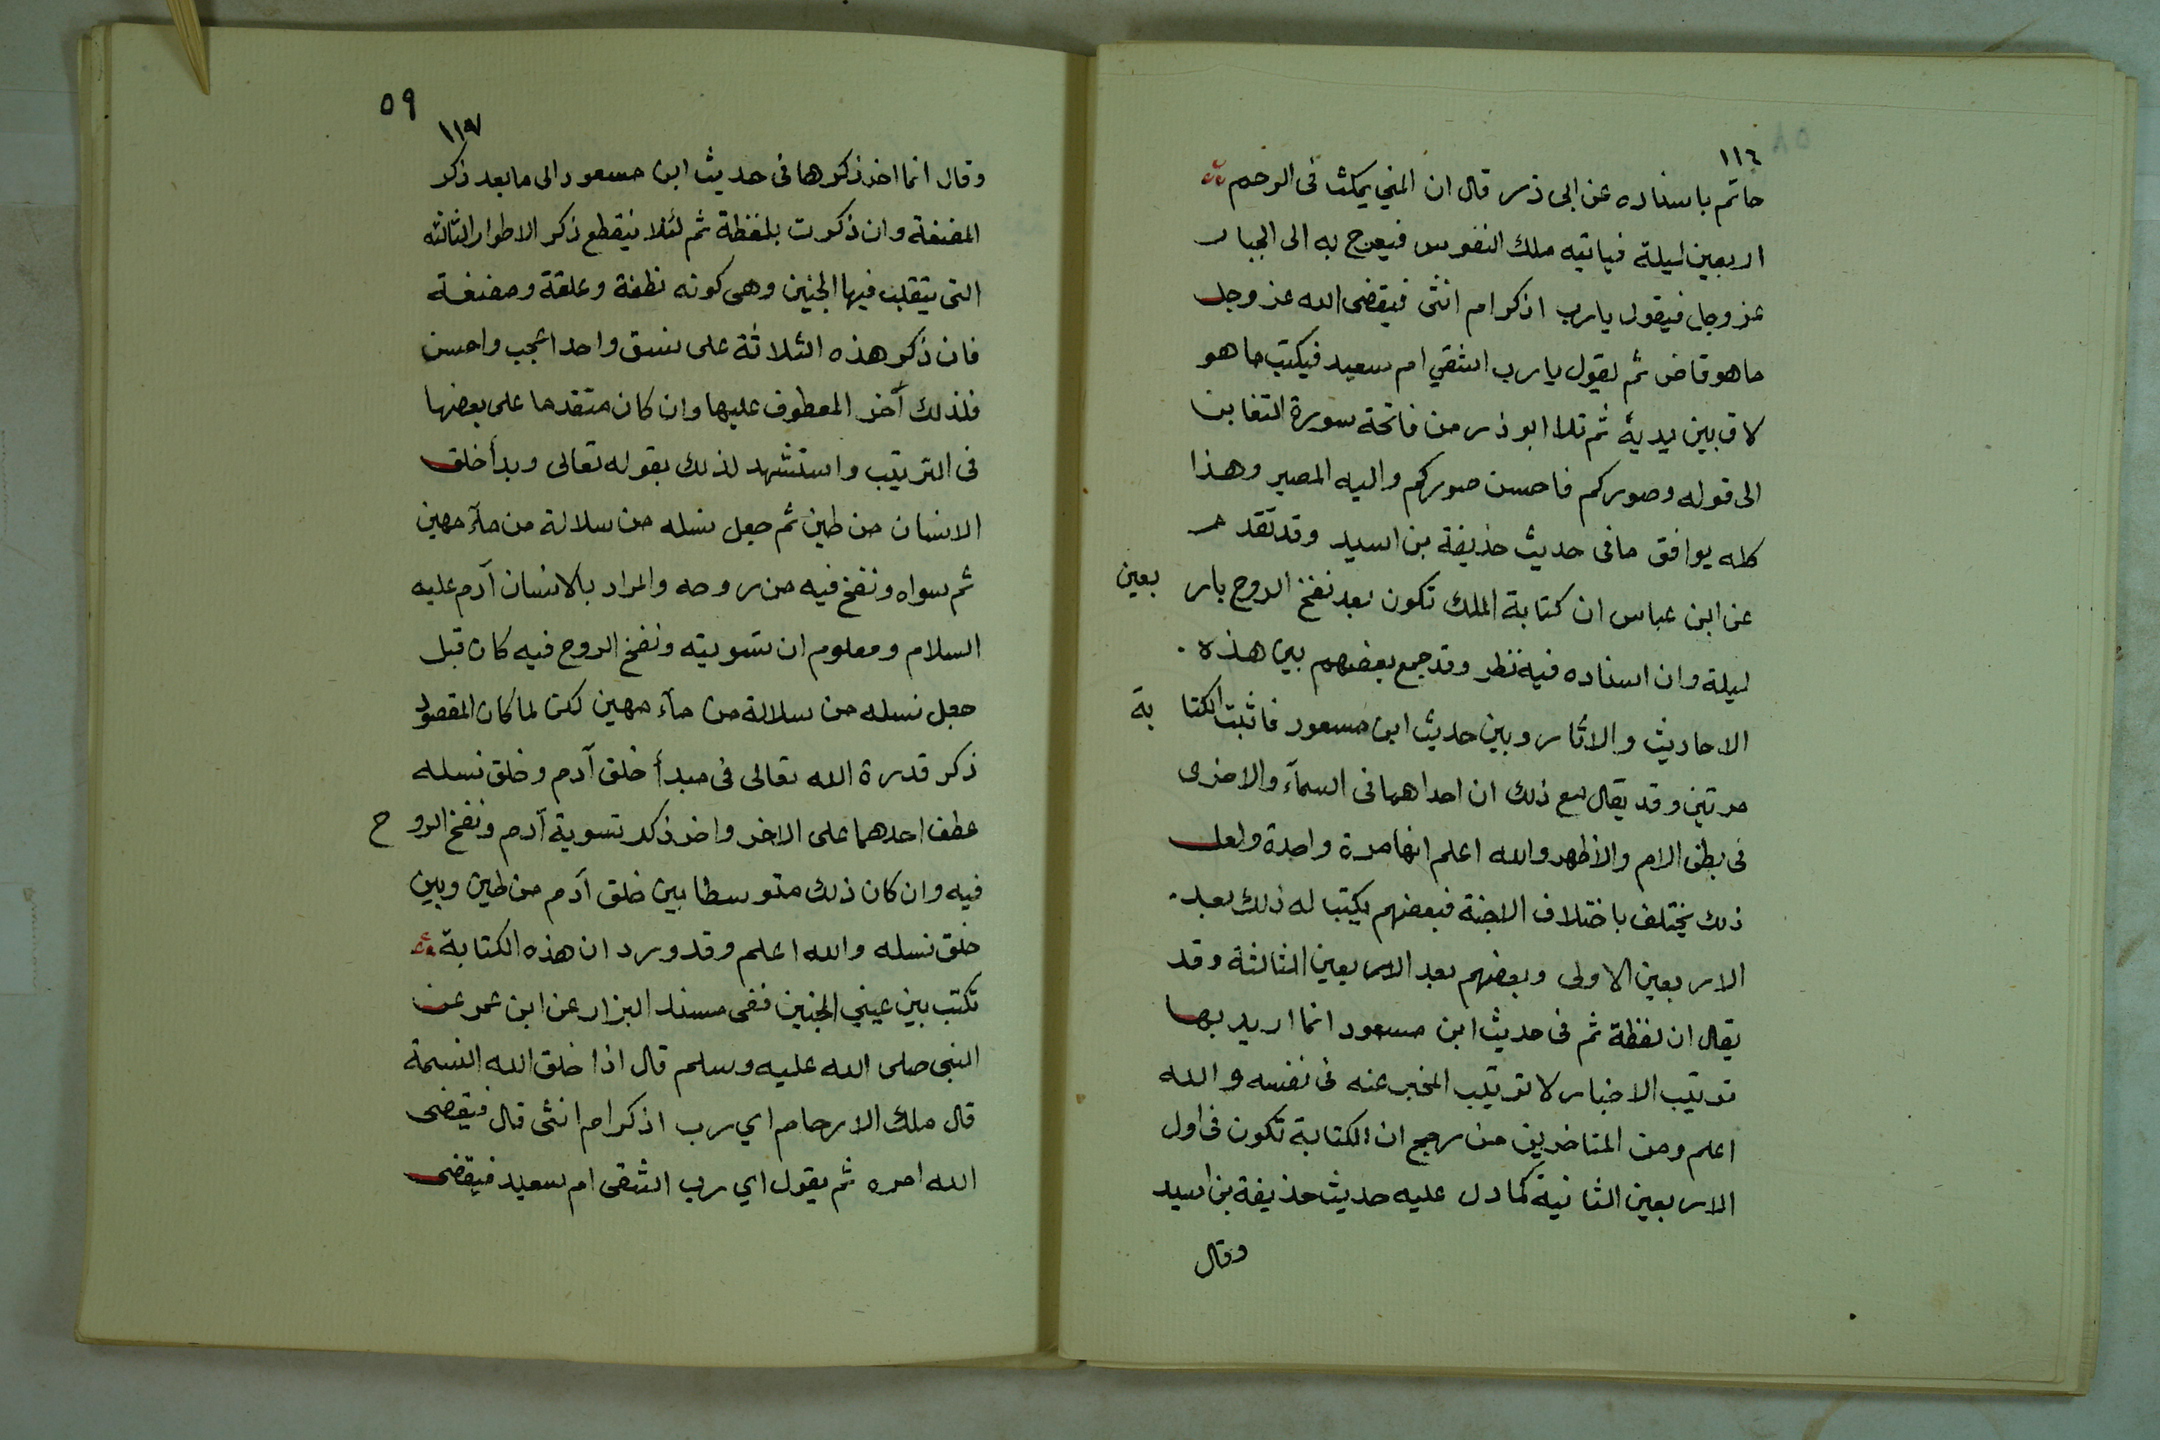 ١١٦
حاتم باسناده عن ابى ذر قال ان المني يمكث فى الرحم
اربعين ليلة فياتيه ملك النفوس فيعرج به الى الجبار
عز وجل فيقول يا رب اذكر ام انثى فيقضى الله عز وجل
ما هو قاض ثم يقول يا رب اشقي ام سعيد فيكتب ما هو
لاق بين يديه ثم تلا ابو ذر من فاتحة سورة التغابن
الى قوله وصوركم فاحسن صوركم واليه المصير وهذا
كله يوافق ما فى حديث حذيفة بن اسيد وقد تقدم
عن ابن عباس ان كتابة الملك تكون بعد نفخ الروح بار بعين
ليلة وان اسناده فيه نظر وقد جمع بعضهم بين هذه
الاحاديث والاثار وبين حديث ابن مسعود فاثبت الكتا بة
مرتين وقد يقال مع ذلك ان احداهما فى السمآء والاخرى
فى بطن الام والاظهر والله اعلم انها مرة واحدة ولعل
ذلك يختلف باختلاف الاجنة فبعضهم يكتب له ذلك بعد
الاربعين الاولى وبعضهم بعد الاربعين الثالثة وقد
يقال ان لفظة ثم فى حديث ابن مسعود انما اريد بها
ترتيب الاخبار لا ترتيب المخبر عنه فى نفسه والله
اعلم ومن المتاخرين من رجح ان الكتابة تكون فى اول
الاربعين الثانية كما دل عليه حديث حذيفة بن اسيد
وقال
٥٩
١١٧
وقال انما اخر ذكرها فى حديث ابن مسعود الى ما بعد ذكر
المضغة وان ذكرت بلفظة ثم لئلا ينقطع ذكر الاطوار الثالثه
التى يتقلب فيها الجنين وهى كونه نطفة وعلقة ومضغة
فان ذكر هذه الثلاثة على نسق واحد اعجب واحسن
فلذلك آخر المعطوف عليها وان كان متقدما على بعضها
فى الترتيب واستشهد لذلك بقوله تعالى وبدأ خلق
الانسان من طين ثم جعل نسله من سلالة من مآء مهين
ثم سواه ونفخ فيه من روحه والمراد بالانسان آدم عليه
السلام ومعلوم ان تسويته ونفخ الروح فيه كان قبل
جعل نسله من سلالة من مآء مهين لكن لما كان المقصود
ذكر قدرة الله تعالى فى مبدأ خلق آدم وخلق نسله
عطف احدهما على الاخر واخر ذكر تسوية آدم ونفخ الرو ح
فيه وان كان ذلك متوسطا بين خلق آدم من طين وبين
خلق نسله والله اعلم وقد ورد ان هذه الكتابة
تكتب بين عيني الجنين ففى مسند البزار عن ابن عمر عن
النبى صلى الله عليه وسلم قال اذا خلق الله النسمة
قال ملك الارحام اي رب اذكر ام انثى قال فيقضى
الله امره ثم يقول اي رب اشقى ام سعيد فيقضى